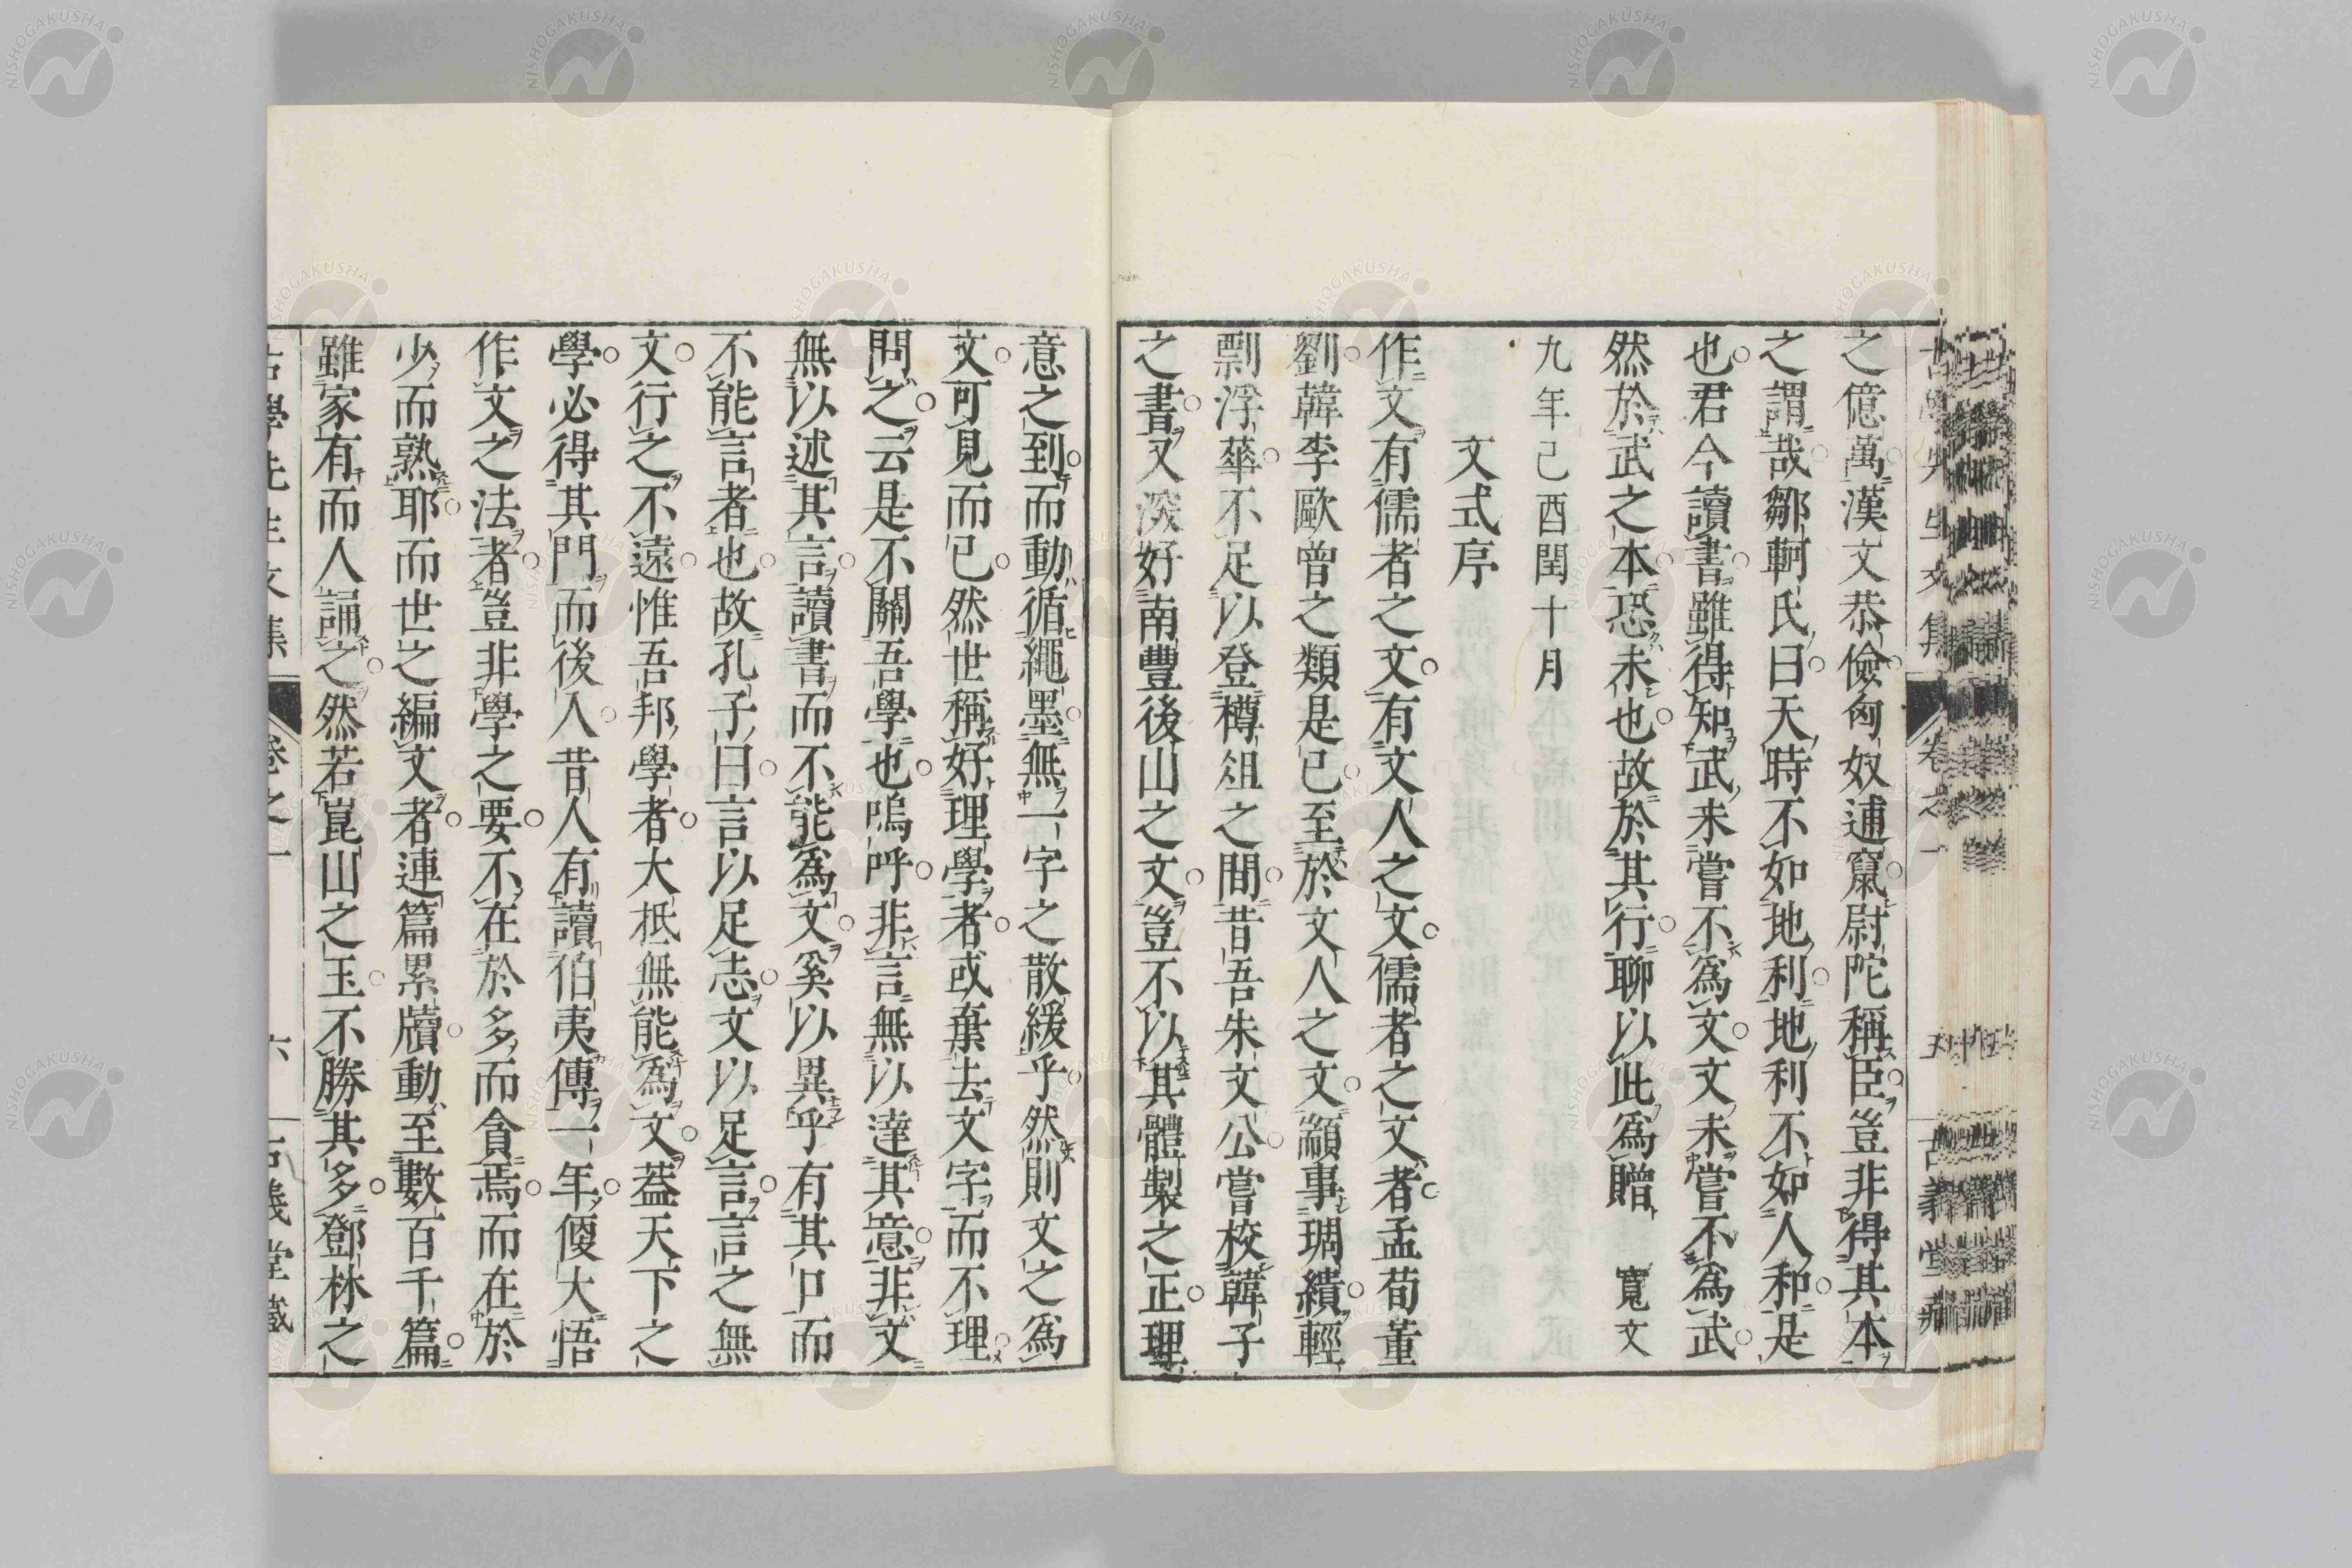 之億萬漢文恭儉匈奴逋竄尉陀稱臣豈非得其本
之謂哉鄒軻氏曰天時不如地利地利不如人和是
也君今讀書雖得知武未嘗不爲文文未嘗不爲武
然於武之本恐未也故於其行聊以此爲贈 寬文
九年己酉閏十月
文式序
作文有儒者之文有文人之文儒者之文者孟荀董
劉韓李歐曾之類是已至於文人之文顓事琱繢輕
剽浮華不足以登樽俎之間昔吾朱文公嘗校韓子
之書又深好南豐後山之文豈不以其體製之正理
意之到而動循繩墨無一字之散緩乎然則文之爲
文可見而已然世稱好理學者或棄去文字而不理
問之云是不關吾學也嗚呼非言無以達其意非文
無以述其言讀書而不能爲文奚以異乎有其口而
不能言者也故孔子曰言以足志文以足言言之無
文行之不遠惟吾邦學者大抵無能爲文蓋天下之
學必得其門而後入昔人有讀伯夷傳一年傻大悟
作文之法者豈非學之要不在於多而貪焉而在於
少而熟耶而世之編文者連篇累牘動至數百千篇
雖家有而人誦之然若崑山之玉不勝其多鄧林之
古學先生文集 卷之一 六 古義堂藏